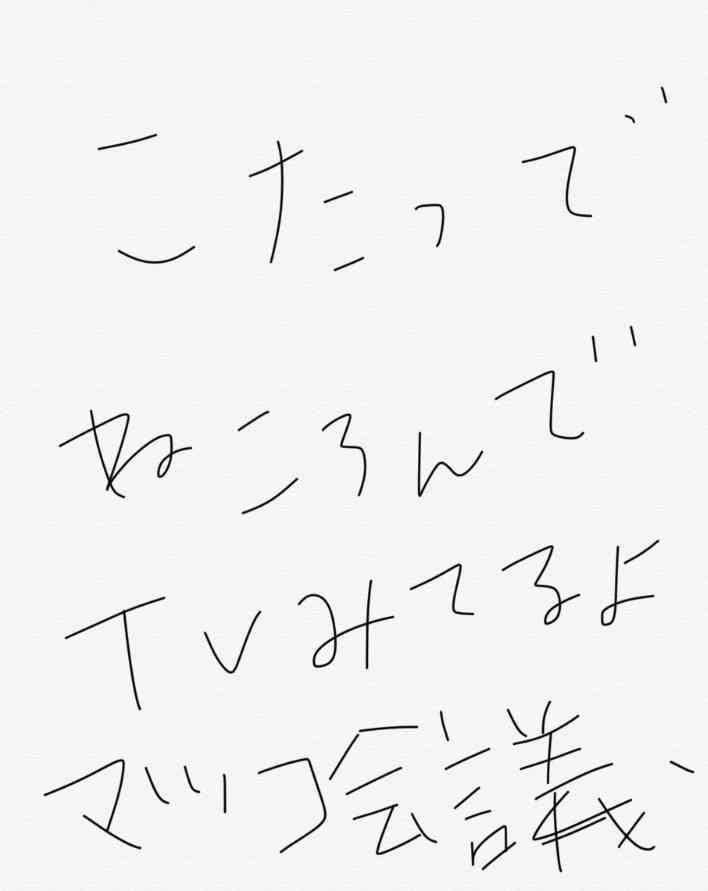 こたつで
ねころんで
TVみてるよ
マツコ会議、